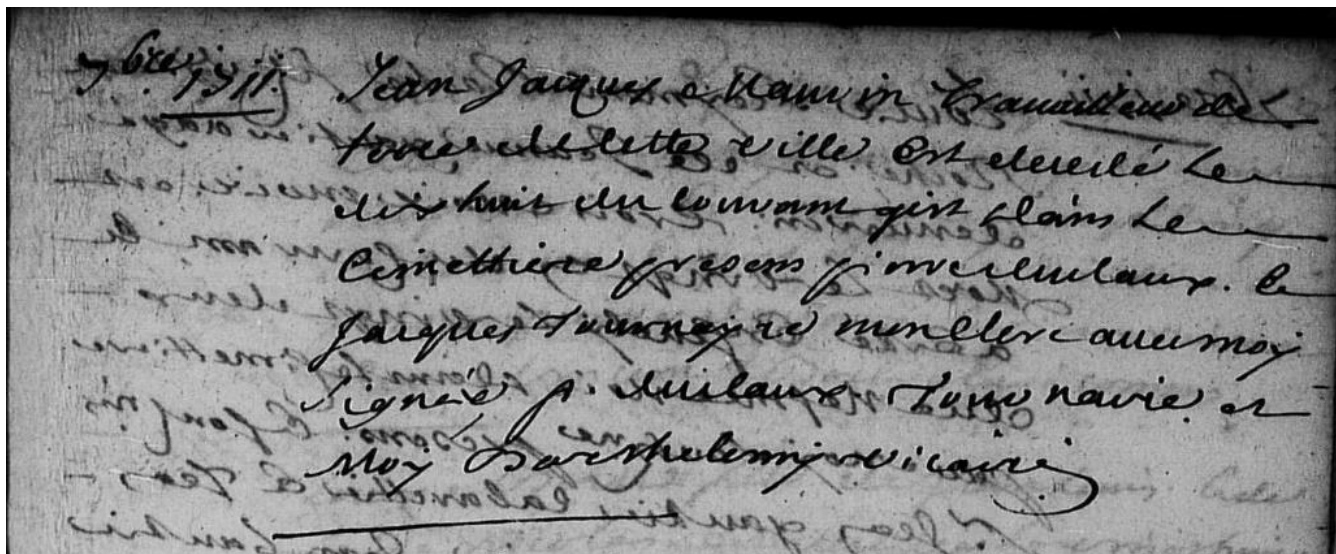 7bre 1711. Jean Jacques Maurin travailleur de
terre de cette ville est decedé Le
dix huit du courant gist dans Le
Cimettiere presens pierre duclaux. &
Jacques Tournayre mon clerc avec moy
signée p. duclaux Tournaire et
Moy Barthelemy vicaire